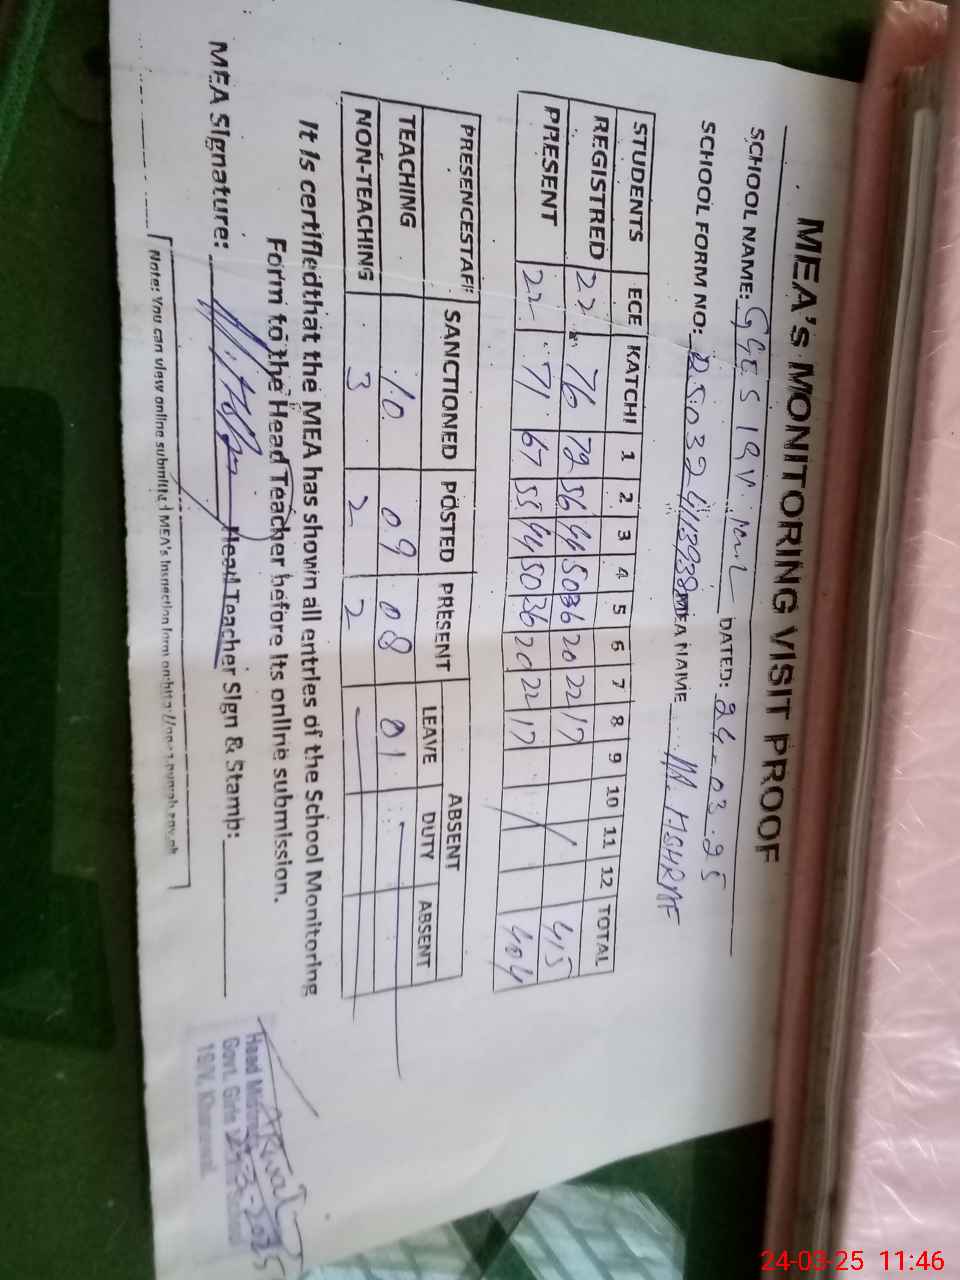 MEA's MONITORING VISIT PROOF
SCHOOL NAME: GGES 18V DATED: 24-03-25
SCHOOL FORM NO: MEA NAME M. ASHRAF
STUDENTS ECE KATCHI 1 2 3 4 5 6 7 8 9 10 11 12 TOTAL
REGISTRED 22 76 72 56 44 50 36 20 22 17 415
PRESENT 22 71 67 55 44 50 36 20 22 17 404
ABSENT
PRESENCESTAFF SANCTIONED POSTED PRESENT LEAVE DUTY ABSENT
TEACHING 10 09 08 01
NON-TEACHING 3 2 2
It is certifiedthat the MEA has shown all entries of the School Monitoring
Form to the Head Teacher before its online submission.
MEA Signature: Head Teacher Sign & Stamp:
Head
Govt. Girls
Khanewal
Note: You can view online submitted MEA's Inspection form on:
24-03-25 11:46